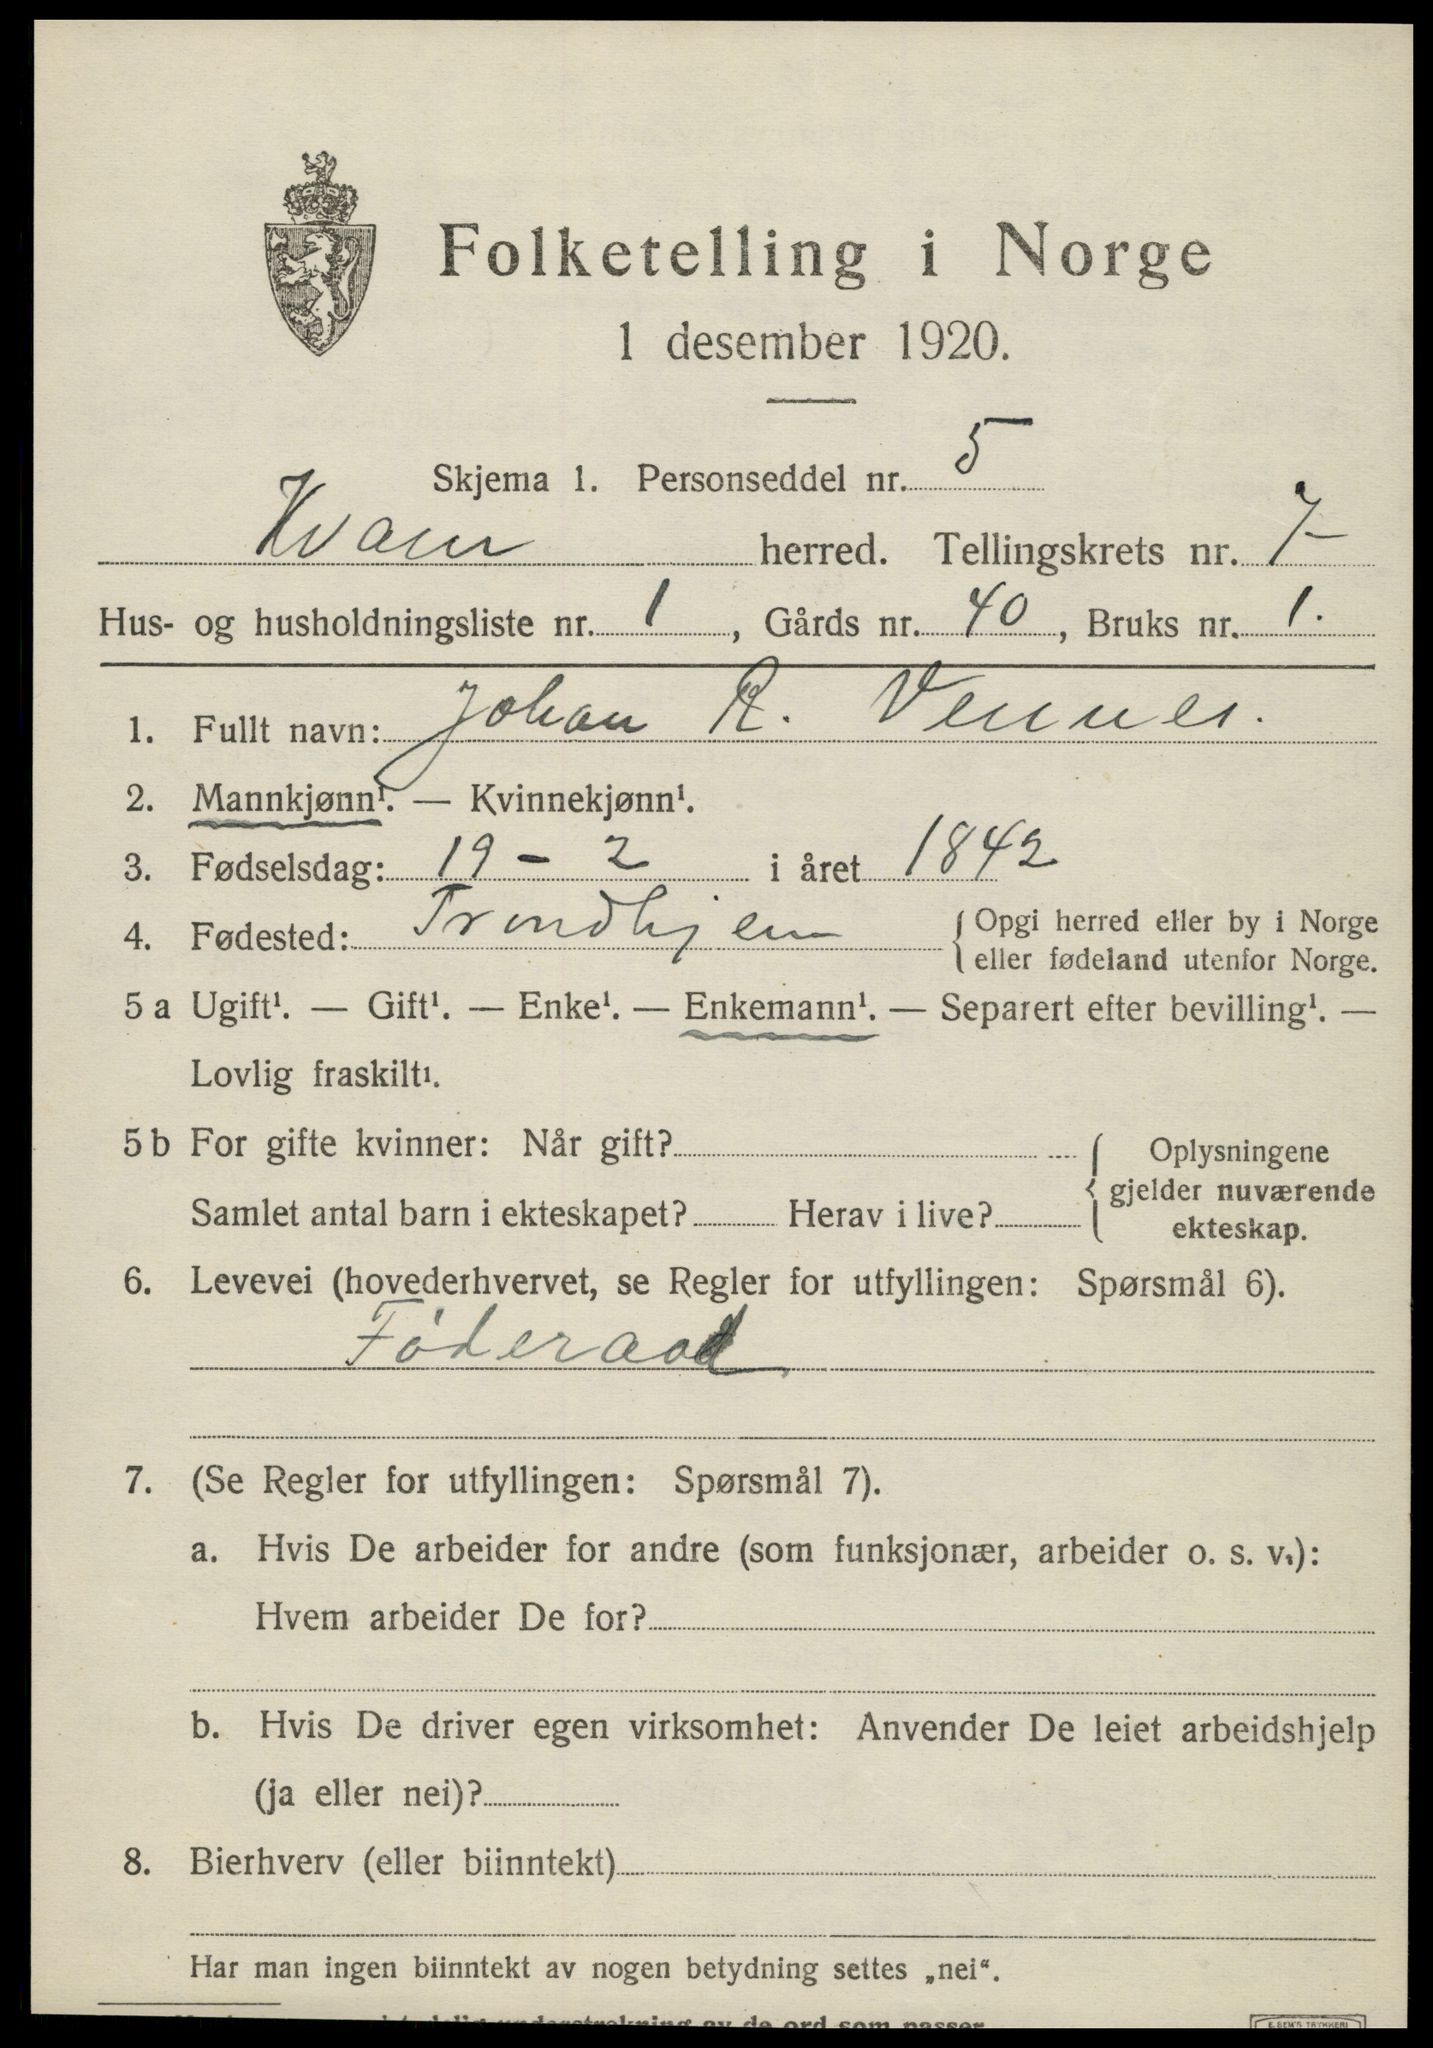 Folketelling i Norge
1 desember 1920.
Skjema 1. Personseddel nr. 5
Kvam herred. Tellingskrets nr. 7
Hus- og husholdningsliste nr. 1, Gårds nr. 40, Bruks nr. 1.
1. Fullt navn: Johan R. Vennes.
2. Mannkjønn¹. — Kvinnekjønn¹.
3. Fødselsdag: 19 - 2 i året 1842
4. Fødested: Trondhjem { Opgi herred eller by i Norge
eller fødeland utenfor Norge.
5 a Ugift¹. — Gift¹. — Enke¹. — Enkemann¹. — Separert efter bevilling¹. —
Lovlig fraskilt¹.
5 b For gifte kvinner: Når gift? { Oplysningene
gjelder nuværende
Samlet antal barn i ekteskapet? Herav i live?
ekteskap.
6. Levevei (hovederhvervet, se Regler for utfyllingen: Spørsmål 6).
Føderaad
7. (Se Regler for utfyllingen: Spørsmål 7).
a. Hvis De arbeider for andre (som funksjonær, arbeider o. s. v.):
Hvem arbeider De for?
b. Hvis De driver egen virksomhet: Anvender De leiet arbeidshjelp
(ja eller nei)?
8. Bierhverv (eller biinntekt)
Har man ingen biinntekt av nogen betydning settes „nei“.
understrekning av de ord som passer
E. SEM'S TRYKKERI